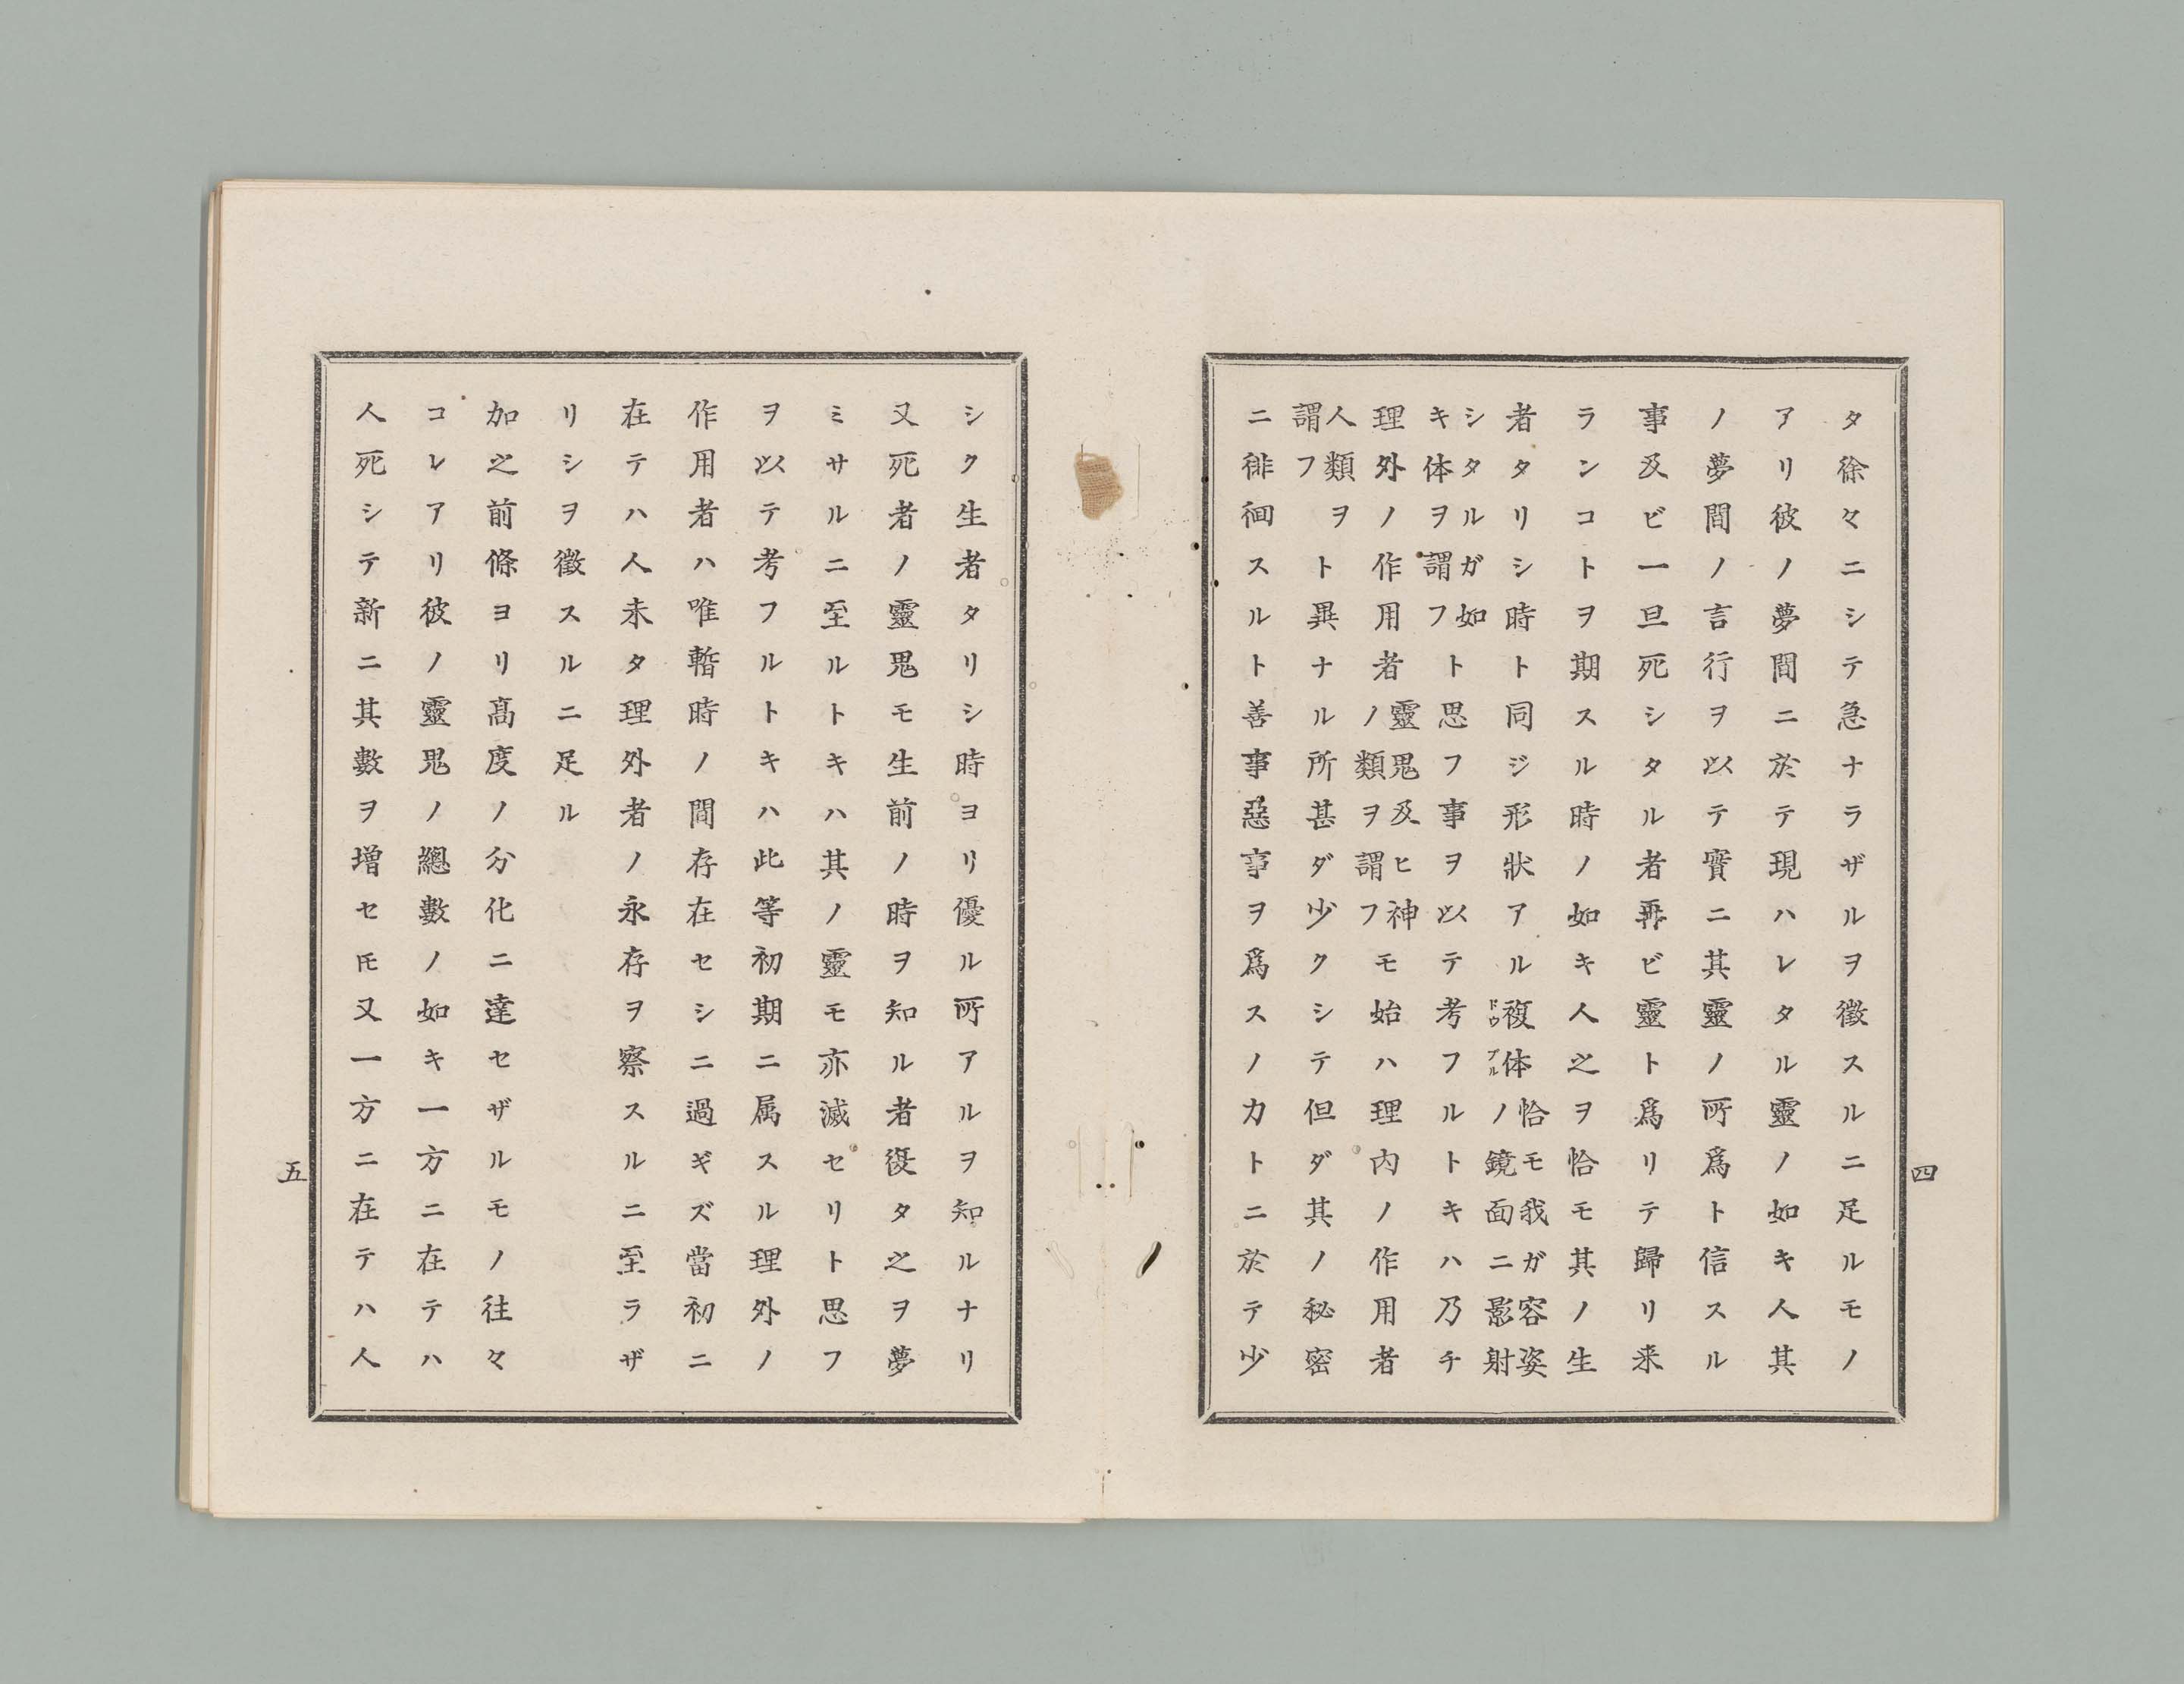 タ徐々ニシテ急ナラザルヲ徴スルニ足ルモノ
アリ彼ノ夢間ニ於テ現ハレタル靈ノ如キ人其
ノ夢間ノ言行ヲ以テ實ニ其靈ノ所爲ト信スル
事及ビ一旦死シタル者再ビ靈ト爲リテ歸リ来
ランコトヲ期スル時ノ如キ人之ヲ恰モ其ノ生
者タリシ時ト同ジ形狀アル複体ドウブルノ恰モ我ガ容姿鏡面ニ影射
シタルガ如キ体ヲ謂フト思フ事ヲ以テ考フルトキハ乃チ
理外ノ作用者靈鬼及ヒ神ノ類ヲ謂フモ始ハ理内ノ作用者
人類ヲ謂フト異ナル所甚ダ少クシテ但ダ其ノ秘密
ニ徘徊スルト善事惡事ヲ爲スノ力トニ於テ少
四
シク生者タリシ時ヨリ優ル所アルヲ知ルナリ
又死者ノ靈鬼モ生前ノ時ヲ知ル者復タ之ヲ夢
ミサルニ至ルトキハ其ノ靈モ亦滅セリト思フ
ヲ以テ考フルトキハ此等初期ニ属スル理外ノ
作用者ハ唯暫時ノ間存在セシニ過ギズ當初ニ
在テハ人未タ理外者ノ永存ヲ察スルニ至ラザ
リシヲ徴スルニ足ル
加之前條ヨリ高度ノ分化ニ達セザルモノ往々
コレアリ彼ノ靈鬼ノ總數ノ如キ一方ニ在テハ
人死シテ新ニ其數ヲ増セ𪜈又一方ニ在テハ人
五